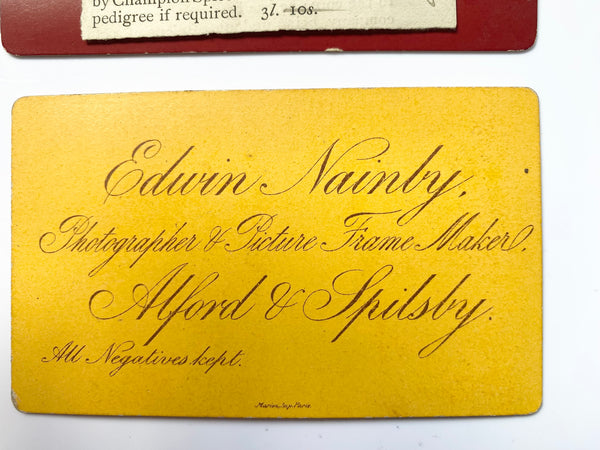 by Champion
pedigree if required. 3l. 10s.
Edwin Nainby,
Photographer & Picture Frame Maker.
Alford & Spilsby.
All Negatives kept.
Marion, Imp. Paris.